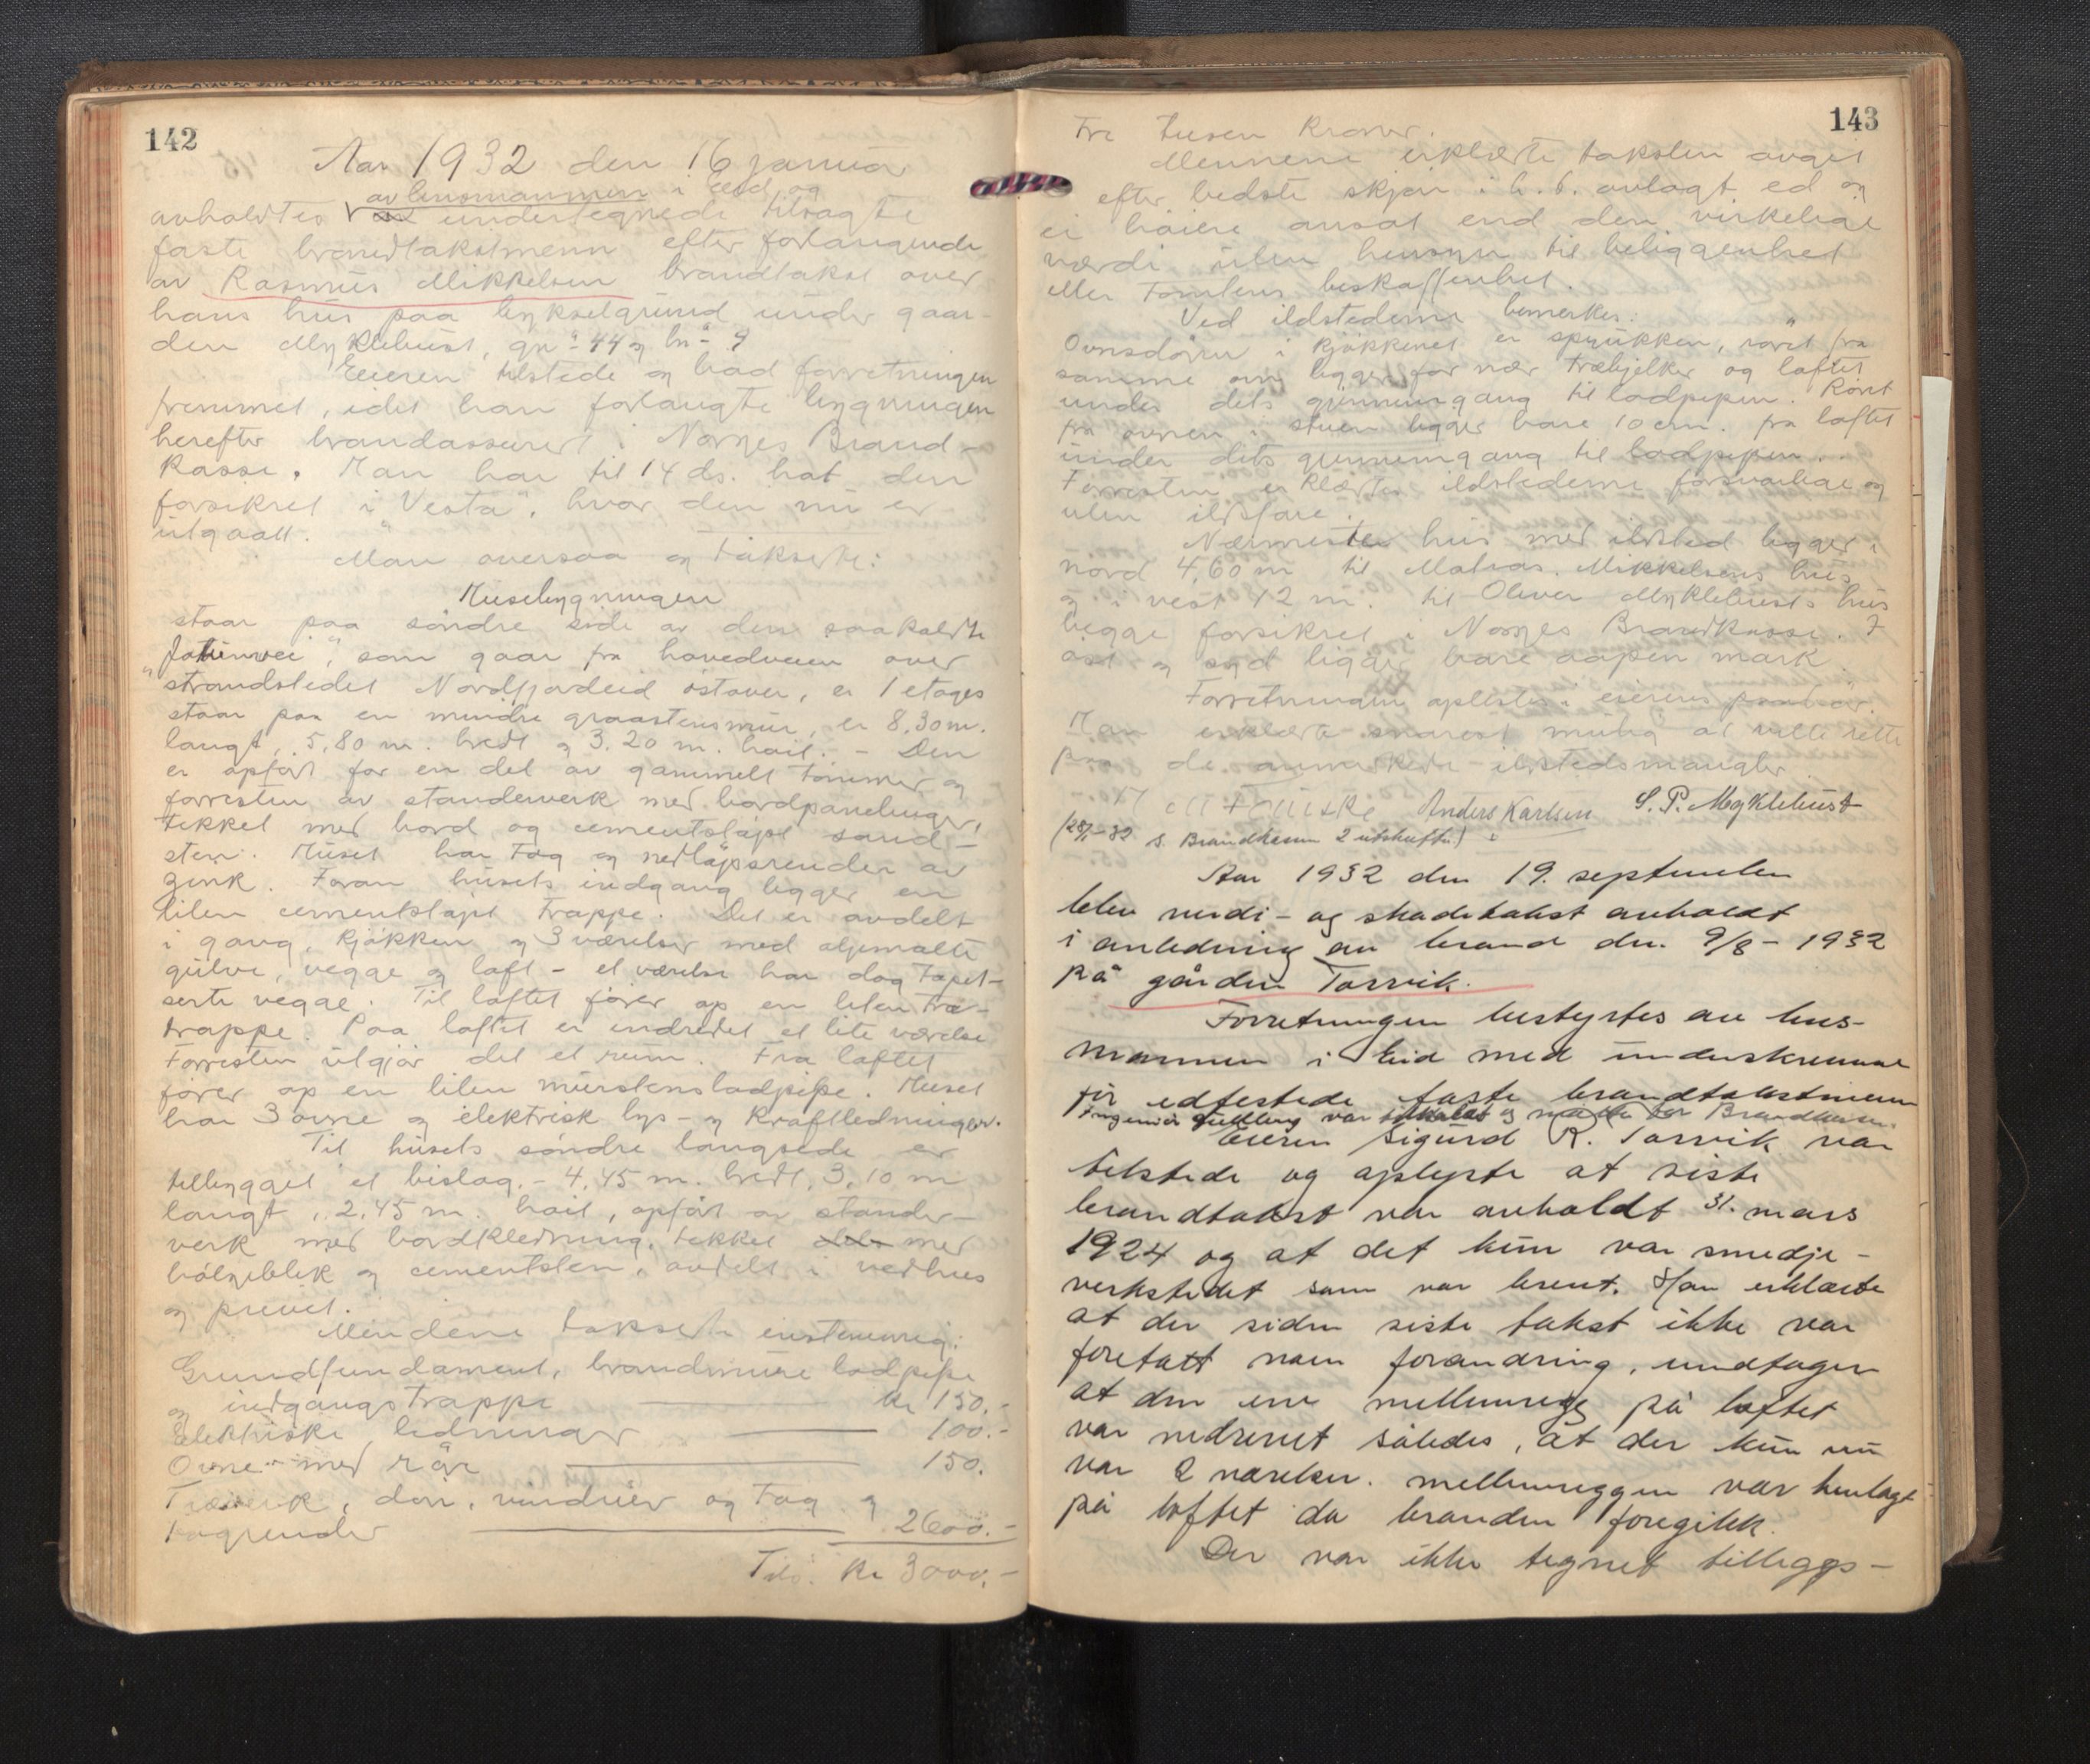 142
Aar 1932 den 16 januar
av lensmannen i Eid og
avholdtes undertegnede tilsagte
faste brandtakstmenn efter forlangende
av Rasmus Mikkelsen brandtakst over
hans hus paa bykselgrund under gaar-
den Myklebust, gn° 44 og bn° 9
Eieren tilstede og bad forretningen
fremmet, idet han forlangte bygningen
herefter brandassurert i Norges Brand-
kasse. Han har til 14 ds. hat den
forsikret i "Vesta", hvor den nu er
utgaatt.
Man oversaa og takserte:
Husebygningen
staar paa søndre side av den saakaldte
"Jotunvei", som gaar fra hovedveien over
strandstedet Nordfjordeid østover, er 1 etages
staar paa en mindre graastensmur, er 8,30 m.
langt, 5,80 m. bredt og 3,20 m. høit. - Den
er opført for en del av gammelt tømmer og
forresten av standerverk med bordpanelinger,
tekket med bord og cementstøpt sand-
sten. Huset har tag og nedløpsrender av
zink. Foran husets indgang ligger en
liten cementstøpt trappe. Det er avdelt
i gang, kjøkken og 3 værelser med oljemalte
gulve, vegge og loft - et værelse har dog tapet-
serte vegge. Til loftet fører op en liten træ-
trappe. Paa loftet er indredet et lite værelse
Forresten utgjør det et rum. Fra loftet
fører op en liten murstenslodpipe. Huset
har 3 ovne og elektrisk lys- og kraftledninger.
Til husets søndre langside er
tilbygget et bislag, - 4,45 m. bredt, 3,10 m
langt, 2,45 m. høit, opført av stander-
verk med bordkledning, tekket med
bølgeblik og cementsten, avdelt i vedhus
og privet.
Mendene takserte enstemmig:
Grundfundament, brandmure lodpipe
og indgangstrappe kr 150.-
Elektriske ledninger 100.-
Ovne med rør 150.
Træverk, dør, vinduer og tag og
tagrender 2600.-
Tils. kr 3000.-
143
Tre tusen kroner.
Mennene erklærte taksten avgit
efter bedste skjøn i h. t. avlagt ed og
ei høiere ansat end den virkelige
værdi uten hensyn til beliggenhet
eller tomtens beskaffenhet.
Ved ildstederne bemerkes:
Ovnsdøren i kjøkkenet er sprukken, røret fra
samme ovn ligger for nær træbjelker og loftet
under dets gjennemgang til lodpipen. Røret
fra ovnen i stuen ligger bare 10 cm. fra loftet
under dets gjennemgang til lodpipen.
Forresten erklærtes ildstederne forsvarlige og
uten ildsfare.
Nærmeste hus med ildsted ligger i
nord 4,60 m til Matias Mikkelsens hus
og i vest 12 m. til Oliver Myklebusts hus
begge forsikret i Norges Brandkasse. I
øst og syd ligger bare aapen mark.
Forretningen oplestes i eierens paahør.
Han erklærte snarest mulig at ville rette
paa de anmerkede ildstedsmangler.
Anders Karlsen S. P. Myklebust
s. Brandkassen 2 utskrifter)
Aar 1932 den 19. september
blev verdi- og skadetakst avholdt
i anledning av brand den 9/8 - 1932
på gården Torvik.
Forretningen bestyrtes av lens-
mannen i Eid med underskrevne
edfestede faste brandtakstmenn
Ingeniør var tilkaldt og møtte for Brandkassen.
Eieren Sigurd R. Torvik var
tilstede og oplyste at siste
brandtakst var avholdt 31. mars
1924 og at det kun var smedje-
verkstedet som var brent. Han erklærte
at der siden siste takst ikke var
foretatt noen forandring, undtagen
at den ene mellemvegg på loftet
var nedrevet således, at der kun nu
var 2 værelser. mellemveggen var henlagt
på loftet da branden foregikk.
Der var ikke tegnet tilleggs-